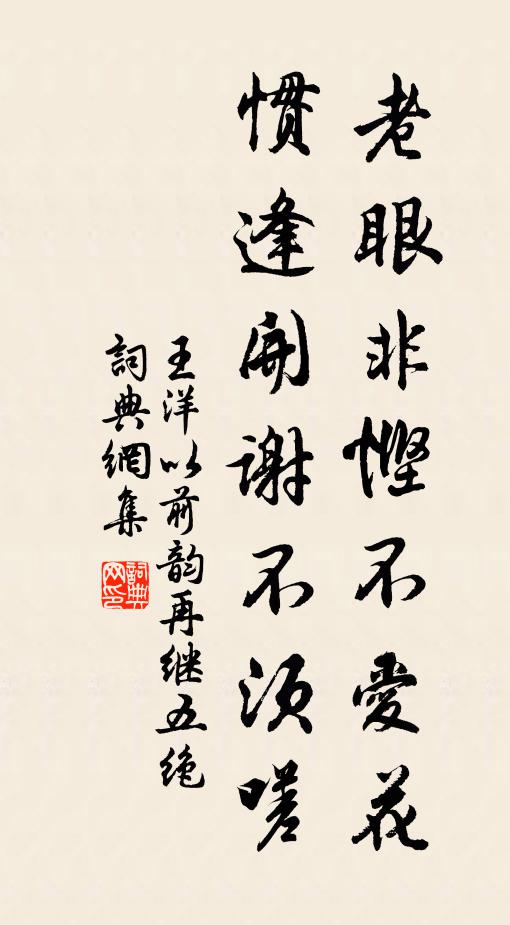 老眼非悭不愛花
慣逢開谢不须嗟
王洋以前韵再继五绝
詞典網集
詞典网印